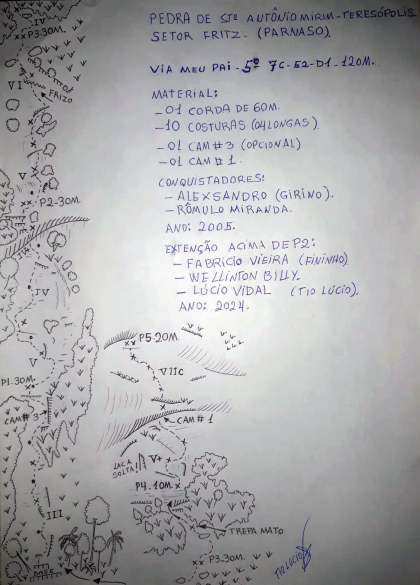 PEDRA DE STO ANTÔNIO MIRIM-TERESÓPOLIS.
SETOR FRITZ. (PARNASO).
VIA MEU PAI - 5º 7C-E2-D1-120M.
MATERIAL:
-01 CORDA DE 60M.
-10 COSTURAS (04 LONGAS).
-01 CAM #3 (OPCIONAL)
-01 CAM #1.
CONQUISTADORES:
- ALEXSANDRO (GIRINO).
- RÔMULO MIRANDA.
ANO: 2005.
EXTENÇÃO ACIMA DE P2:
- FABRÍCIO VIEIRA (FININHO)
- WELLINTON BILLY.
- LÚCIO VIDAL (TIO LÚCIO).
ANO: 2024.
P3.30M.
IV
VI
FRIZO
V
P2-30M.
IV
V
P1.30M.
CAM#3
III
P5.20M.
VIIC
CAM#1
LACA SOLTA!
V+
P4.10M.
TREPA MATO
P3.30M.
BASE
TIOLUCIO